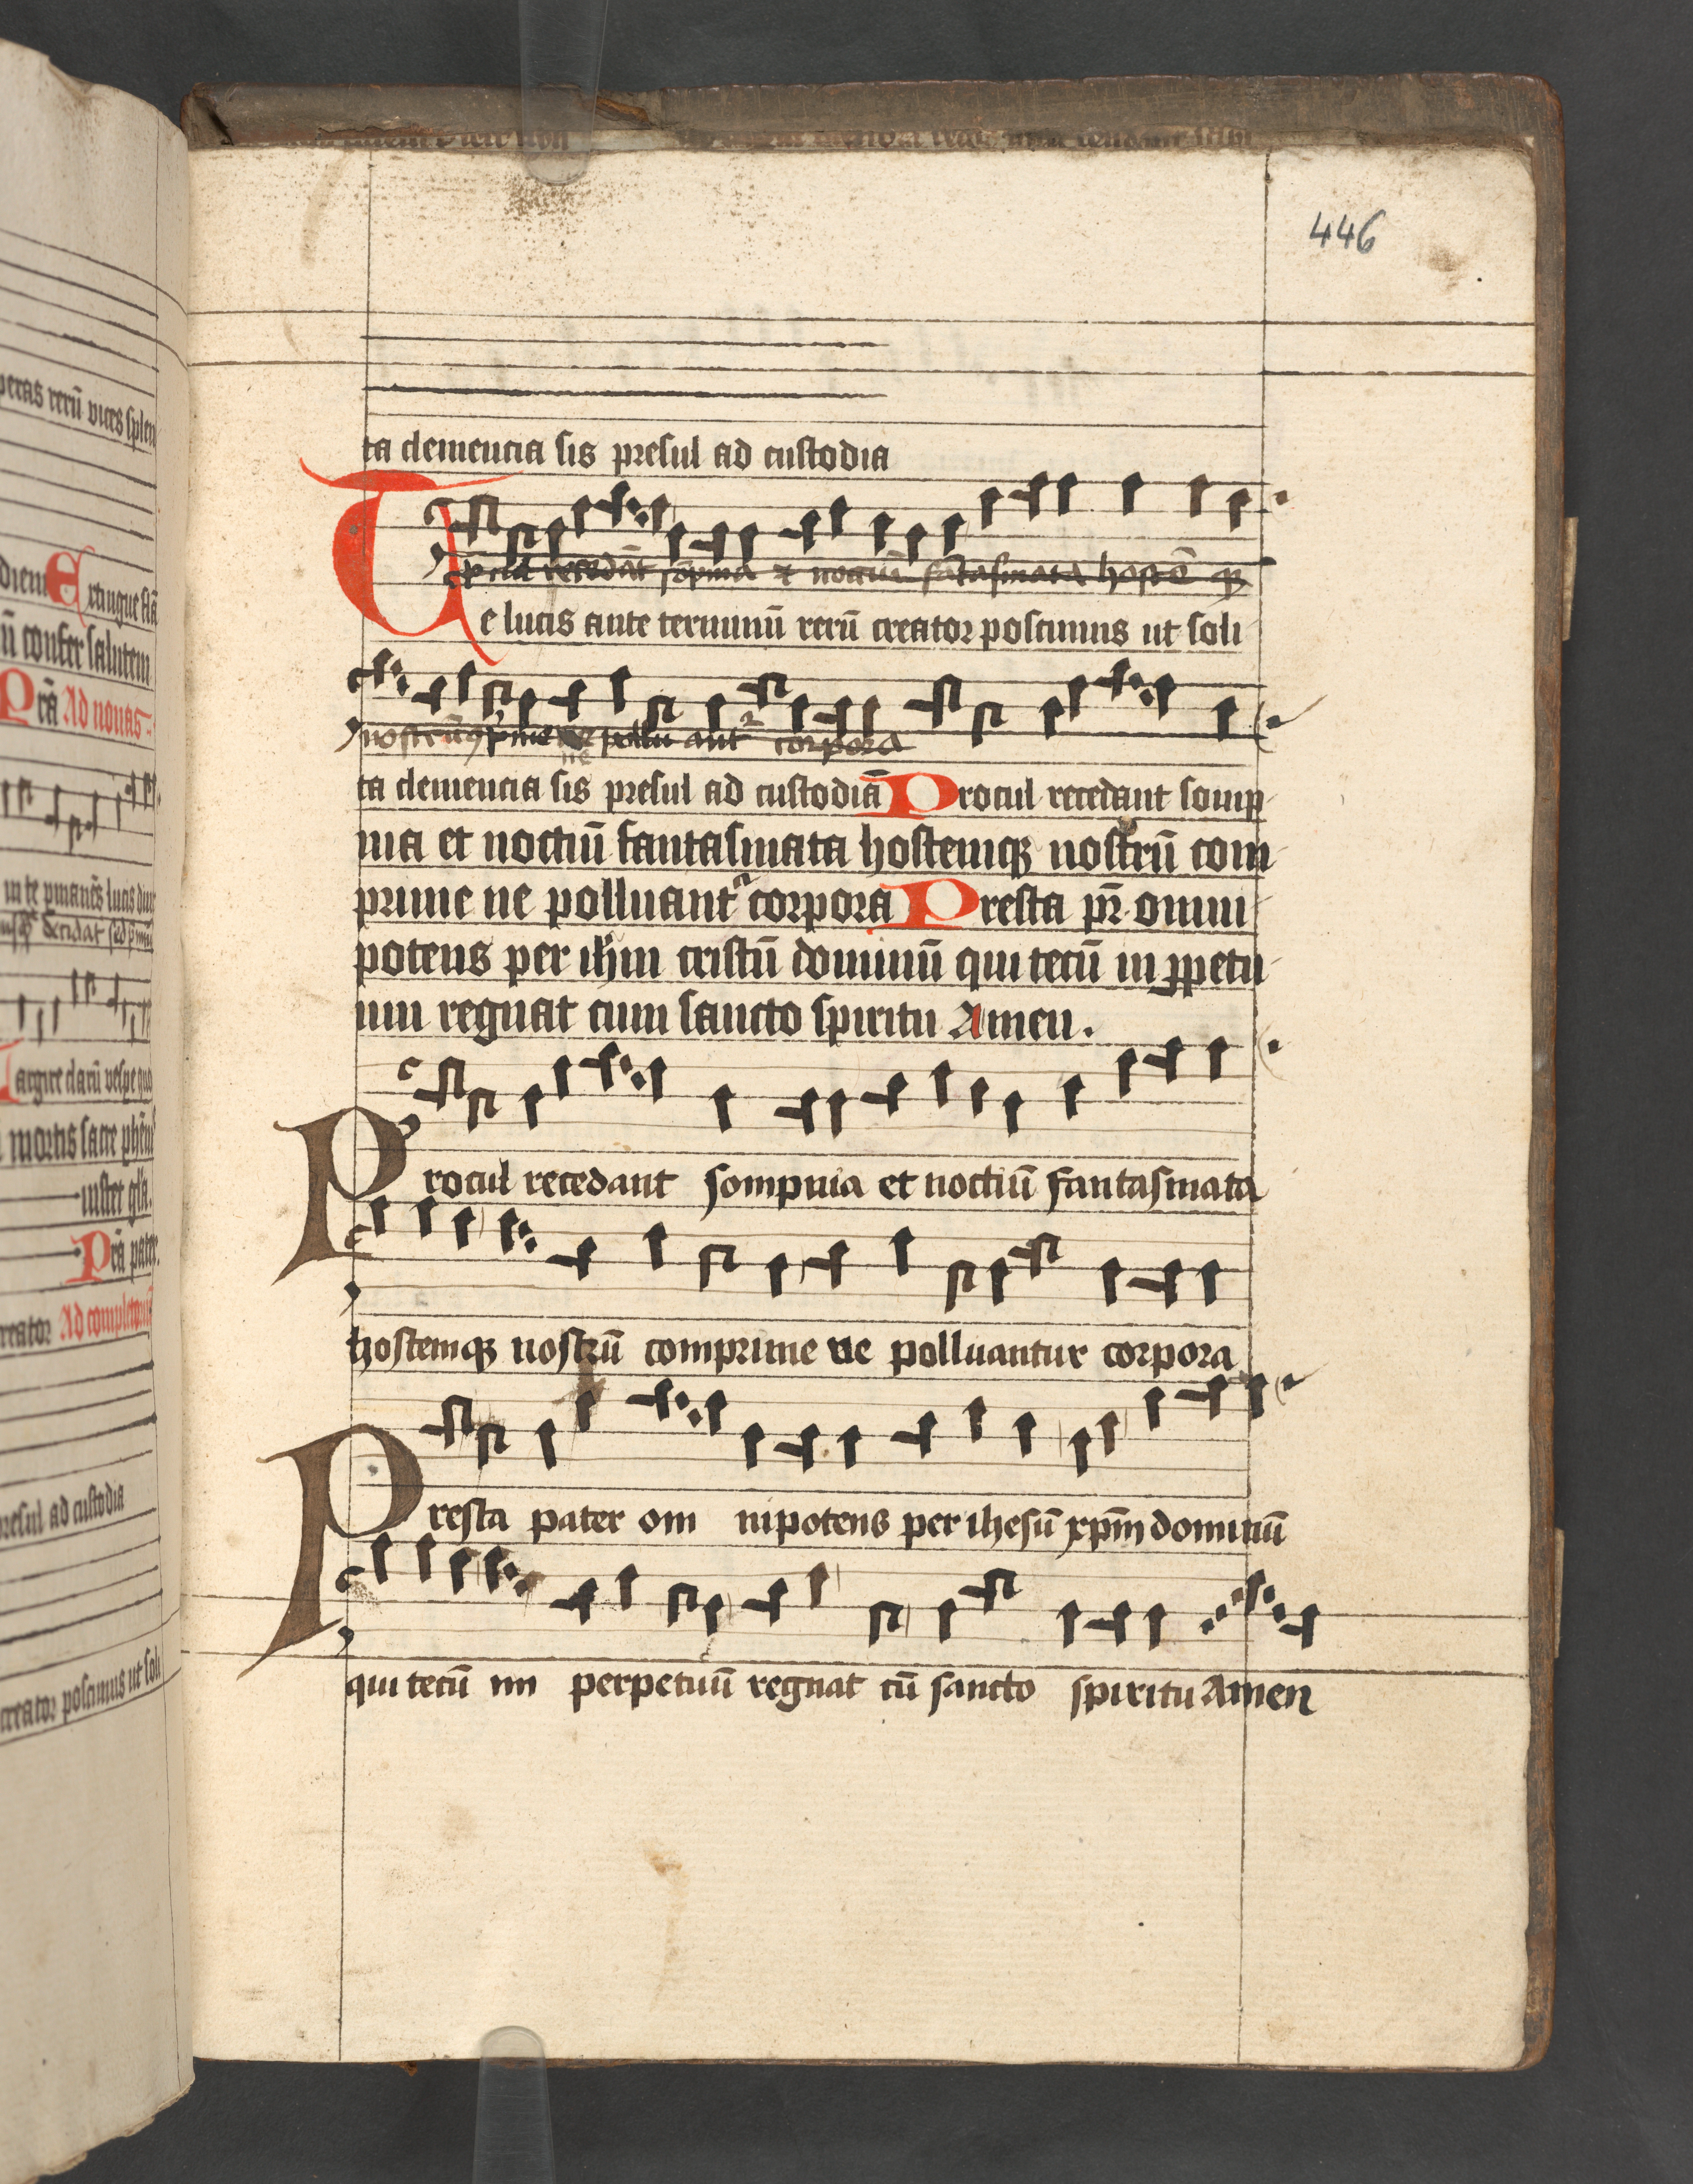 446
ta clemencia sis presul ad custodia
p̄cul recedāt sōpnia et noctiū fātasmata hostē qꝫ
Te lucis ante terminū rerū creator poscimus ut soli
nostrūqꝫ p̄me ne pollu ant² corpora
ne
ta clemencia sis presul ad custodiā Procul recedant somp
nia et noctiū fantasmata hostemqꝫ nostrū com
prime ne polluant² corpora Presta pr̄ omni
potens per ihm cristū dominū qui tecū in ꝑpetu
um regnat cum sancto spiritu Amen.
Procul recedant sompnia et noctiū fantasmata
hostemqꝫ nostrū comprime ne polluantur corpora
Presta pater om nipotens per ihesū xp̄m dominū
qui tecū im perpetuū regnat cū sancto spiritu Amen
peras rerū vices splen
diem Extingue flā
ū confer salutem
Prā Ad nonas
in te pmanēs lucis diur
Largire clarū vespe quo
mortis sacre phēn
instet glā.
Prā pater
creator Ad completoriū
presul ad custodia
creator poscimus ut soli